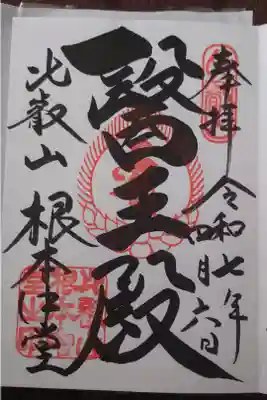 奉拝
令和七年
四月六日
醫王殿
比叡山
根本中堂